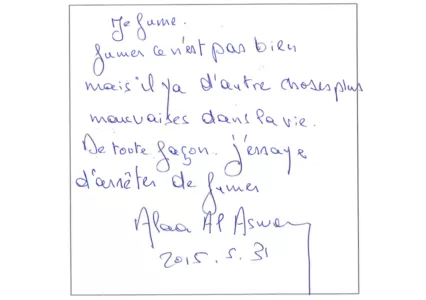 Je fume.
fumer ce n'est pas bien
mais il ya d'autre choses plus
mauvaises dans la vie.
De toute façon. j'essaye
d'arrêter de fumer
Alaa Al Aswany
2015.5.31